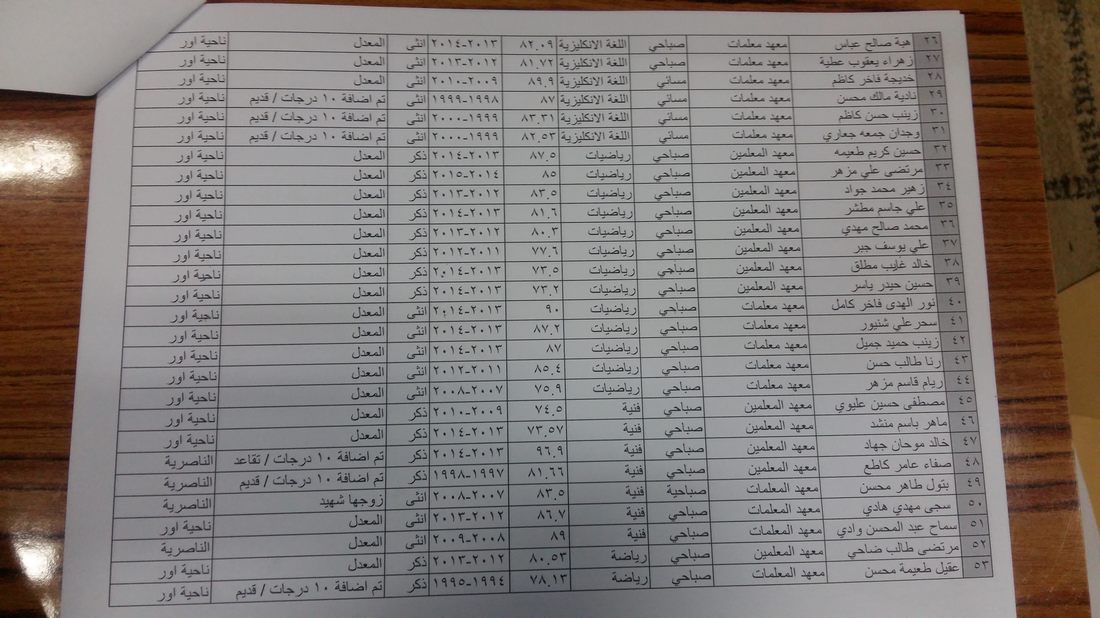 ٢٦ هبة صالح عباس معهد معلمات صباحي اللغة الانكليزية ٨٢.٠٩ ٢٠١٣-٢٠١٤ انثى المعدل ناحية اور
٢٧ زهراء يعقوب عطية معهد معلمات صباحي اللغة الانكليزية ٨١.٧٢ ٢٠١٢-٢٠١٣ انثى المعدل ناحية اور
٢٨ خديجة فاخر كاظم معهد معلمات مسائي اللغة الانكليزية ٨٩.٩ ٢٠٠٩-٢٠١٠ انثى المعدل ناحية اور
٢٩ نادية مالك محسن معهد معلمات مسائي اللغة الانكليزية ٨٧ ١٩٩٨-١٩٩٩ انثى تم اضافة ١٠ درجات / قديم ناحية اور
٣٠ زينب حسن كاظم معهد معلمات مسائي اللغة الانكليزية ٨٣.٣١ ١٩٩٩-٢٠٠٠ انثى تم اضافة ١٠ درجات / قديم ناحية اور
٣١ وجدان جمعه جعاري معهد معلمات مسائي اللغة الانكليزية ٨٢.٥٣ ١٩٩٩-٢٠٠٠ انثى تم اضافة ١٠ درجات / قديم ناحية اور
٣٢ حسين كريم طعيمه معهد المعلمين صباحي رياضيات ٨٧.٥ ٢٠١٣-٢٠١٤ ذكر المعدل ناحية اور
٣٣ مرتضى علي مزهر معهد المعلمين صباحي رياضيات ٨٥ ٢٠١٤-٢٠١٥ ذكر المعدل ناحية اور
٣٤ زهير محمد جواد معهد المعلمين صباحي رياضيات ٨٣.٥ ٢٠١٢-٢٠١٣ ذكر المعدل ناحية اور
٣٥ علي جاسم مطشر معهد المعلمين صباحي رياضيات ٨١.٦ ٢٠١٣-٢٠١٤ ذكر المعدل ناحية اور
٣٦ محمد صالح مهدي معهد المعلمين صباحي رياضيات ٨٠.٣ ٢٠١٢-٢٠١٣ ذكر المعدل ناحية اور
٣٧ علي يوسف جبر معهد المعلمين صباحي رياضيات ٧٧.٦ ٢٠١١-٢٠١٢ ذكر المعدل ناحية اور
٣٨ خالد غايب مطلق معهد المعلمين صباحي رياضيات ٧٣.٥ ٢٠١٣-٢٠١٤ ذكر المعدل ناحية اور
٣٩ حسين حيدر ياسر معهد المعلمين صباحي رياضيات ٧٣.٢ ٢٠١٣-٢٠١٤ ذكر المعدل ناحية اور
٤٠ نور الهدى فاخر كامل معهد معلمات صباحي رياضيات ٩٠ ٢٠١٣-٢٠١٤ انثى المعدل ناحية اور
٤١ سحر علي شنيور معهد معلمات صباحي رياضيات ٨٧.٢ ٢٠١٣-٢٠١٤ انثى المعدل ناحية اور
٤٢ زينب حميد جميل معهد معلمات صباحي رياضيات ٨٧ ٢٠١٣-٢٠١٤ انثى المعدل ناحية اور
٤٣ رنا طالب حسن معهد معلمات صباحي رياضيات ٨٥.٤ ٢٠١١-٢٠١٢ انثى المعدل ناحية اور
٤٤ ريام قاسم مزهر معهد معلمات صباحي رياضيات ٧٥.٩ ٢٠٠٧-٢٠٠٨ انثى المعدل ناحية اور
٤٥ مصطفى حسين عليوي معهد المعلمين صباحي فنية ٧٤.٥ ٢٠٠٩-٢٠١٠ ذكر المعدل ناحية اور
٤٦ ماهر باسم منشد معهد المعلمين صباحي فنية ٧٣.٥٧ ٢٠١٣-٢٠١٤ ذكر المعدل ناحية اور
٤٧ خالد موحان جهاد معهد المعلمين صباحي فنية ٩٦.٩ ٢٠١٣-٢٠١٤ ذكر تم اضافة ١٠ درجات / تقاعد الناصرية
٤٨ صفاء عامر كاطع معهد المعلمين صباحي فنية ٨١.٦٦ ١٩٩٧-١٩٩٨ ذكر تم اضافة ١٠ درجات / قديم الناصرية
٤٩ بتول طاهر محسن معهد المعلمات صباحية فنية ٨٣.٥ ٢٠٠٧-٢٠٠٨ انثى زوجها شهيد الناصرية
٥٠ سجى مهدي هادي معهد المعلمات صباحي فنية ٨٦.٧ ٢٠١٢-٢٠١٣ انثى المعدل ناحية اور
٥١ سماح عبد المحسن وادي معهد المعلمات صباحي فنية ٨٩ ٢٠٠٨-٢٠٠٩ انثى المعدل الناصرية
٥٢ مرتضى طالب ضاحي معهد المعلمين صباحي رياضة ٨٠.٥٣ ٢٠١٢-٢٠١٣ ذكر المعدل ناحية اور
٥٣ عقيل طعيمة محسن معهد المعلمات صباحي رياضة ٧٨.١٣ ١٩٩٤-١٩٩٥ ذكر تم اضافة ١٠ درجات / قديم ناحية اور